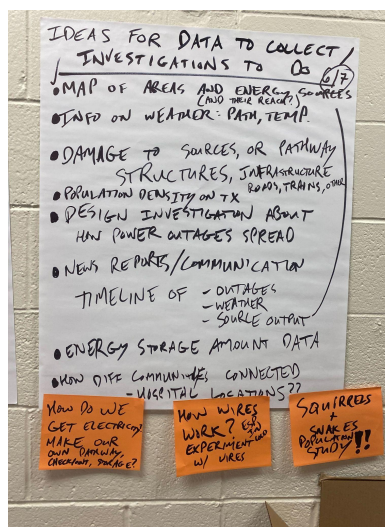 IDEAS FOR DATA TO COLLECT/
INVESTIGATIONS TO DO
6/7
•MAP OF AREAS AND ENERGY SOURCES
(AND THEIR REACH?)
•INFO ON WEATHER: PATH, TEMP.
•DAMAGE TO SOURCES, OR PATHWAY
STRUCTURES, INFRASTRUCTURE
ROADS, TRAINS, OTHER
•POPULATION DENSITY ON TX
•DESIGN INVESTIGATION ABOUT
HOW POWER OUTAGES SPREAD
•NEWS REPORTS/COMMUNICATION
TIMELINE OF - OUTAGES
- WEATHER
- SOURCE OUTPUT
•ENERGY STORAGE AMOUNT DATA
•HOW DIFF COMMUNITIES CONNECTED
- HOSPITAL LOCATIONS??
HOW DO WE
GET ELECTRICITY?
MAKE OUR
OWN PATHWAY,
CHECKPOINTS, STORAGE?
HOW WIRES
WORK? ESP IN
EXPERIMENT
W/ WIRES
SQUIRRELS
+
SNAKES
POPULATION
STUDY!!